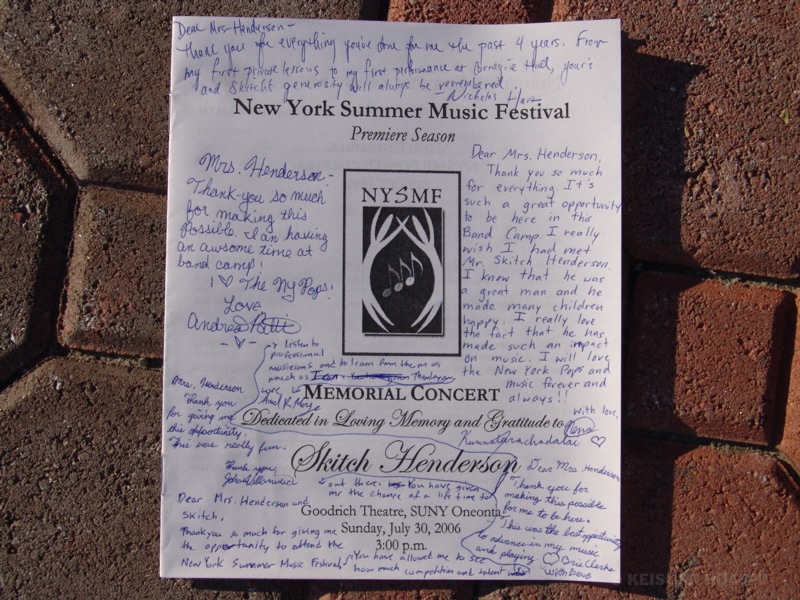 Dear Mrs. Henderson -
Thank you for everything you've done for me the past 4 years. From
my first private lessons to my first performance at Carnegie Hall, your's
and Skitch's generosity will always be remembered.
Nicholas
New York Summer Music Festival
Premiere Season
Mrs. Henderson-
Thank-you so much
for making this
possible. I an having
an awsome time at
band camp!
I ♡ The Ny Pops!
Love
Andrea
NYSMF
Dear Mrs. Henderson,
Thank you so much
for everything. It's
such a great opportunity
to be here in this
Band Camp. I really
wish I had met
Mr. Skitch Henderson.
I know that he was
a great man and he
made many children
happy. I really love
the fact that he has
made such an impact
on music. I will love
the New York Pops and
music forever and
always!!
with love,
listen to
professional
musicians and to learn from them as
much as
Mrs. Henderson
Thank you
for giving me
this opportunity.
This was really fun.
Thank you,
MEMORIAL CONCERT
Dedicated in Loving Memory and Gratitude to
Skitch Henderson
Goodrich Theatre, SUNY Oneonta
Sunday, July 30, 2006
3:00 p.m.
Dear Mrs. Henderson and
Skitch,
Thank you so much for giving me
the opportunity to attend the
New York Summer Music Festival.
You have allowed me to see
how much competition and talent
out there. You have given
me the chance of a life time to
Dear Mrs. Henderson
Thank you for
making this possible
for me to be here.
This was the best opportunity
to advance in my music
and playing
♡ Brie Clarke